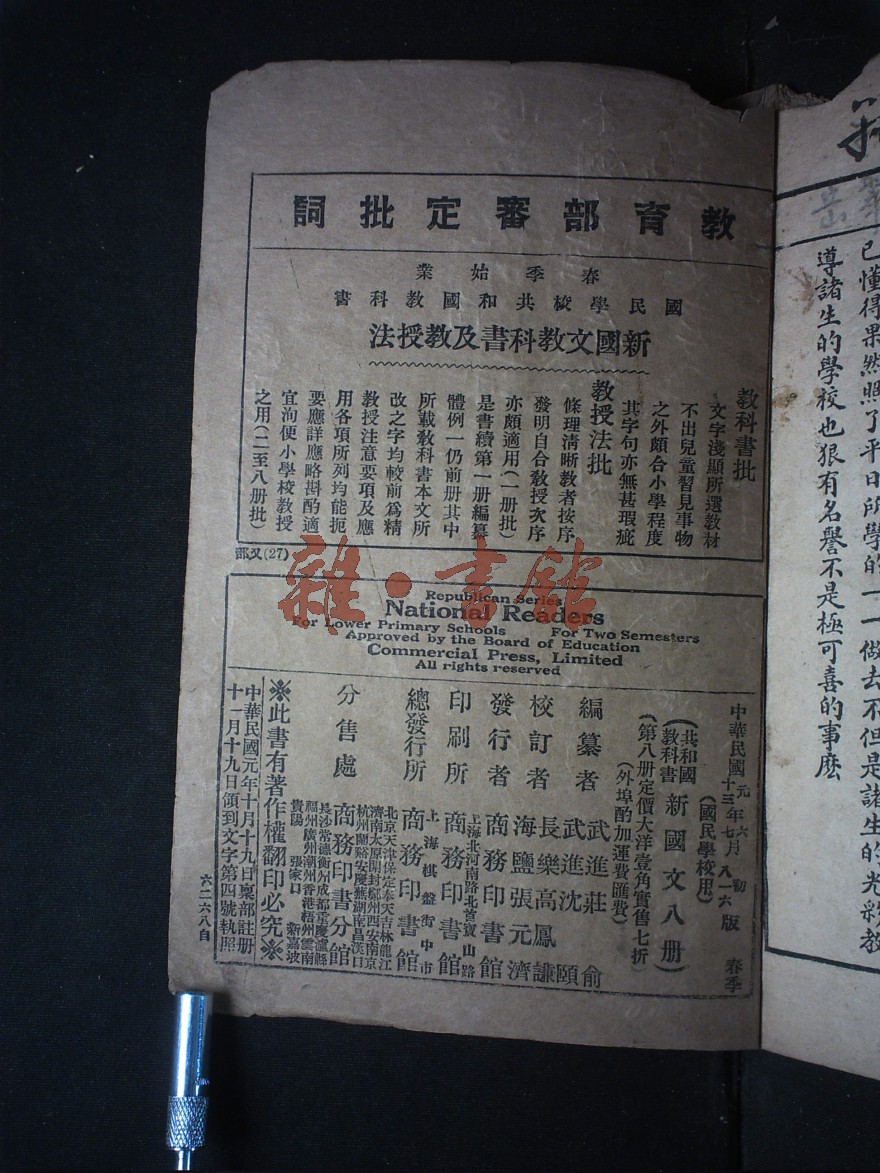 教育部審定批詞
春季始業
國民學校共和國教科書
新國文教科書及教授法
教科書批
文字淺顯所選教材
不出兒童習見事物
之外頗合小學程度
其字句亦無甚瑕疵
教授法批
條理清晰教者按序
發明自合教授次序
亦頗適用(一册批)
是書續第一册編纂
體例一仍前册其中
所載教科書本文所
改之字均較前爲精
教授注意要項及應
用各項所列均能扼
要應詳應略斟酌適
宜洵便小學校教授
之用(二至八册批)
部又(27)
Republican Series
National Readers
For Lower Primary Schools For Two Semesters
Approved by the Board of Education
Commercial Press, Limited
All rights reserved
中華民國元年六月初版
十三年七月八一六版
春季
(國民學校用)
(共和國教科書新國文八册)
(第八册定價大洋壹角實售七折)
(外埠酌加運費匯費)
編纂者
武進莊俞
武進沈頤
校訂者
長樂高鳳謙
海鹽張元濟
發行者
商務印書館
印刷所
上海北河南路北首寶山路
商務印書館
總發行所
上海棋盤街中市
商務印書館
分售處
北京天津保定奉天吉林龍江
濟南太原開封鄭州西安南京
杭州蘭谿安慶蕪湖南昌漢口
商務印書分館
長沙常德衡州成都重慶瀘縣
福州廣州潮州香港梧州雲南
貴陽 張家口 新嘉坡
※此書有著作權翻印必究※
中華民國元年十月十九日稟部註册
十一月十九日領到文字第四號執照
六二六八自
已懂得果然照了平日所學的一一做去不但是諸生的光彩教
導諸生的學校也狠有名譽不是極可喜的事麽
雜·書館